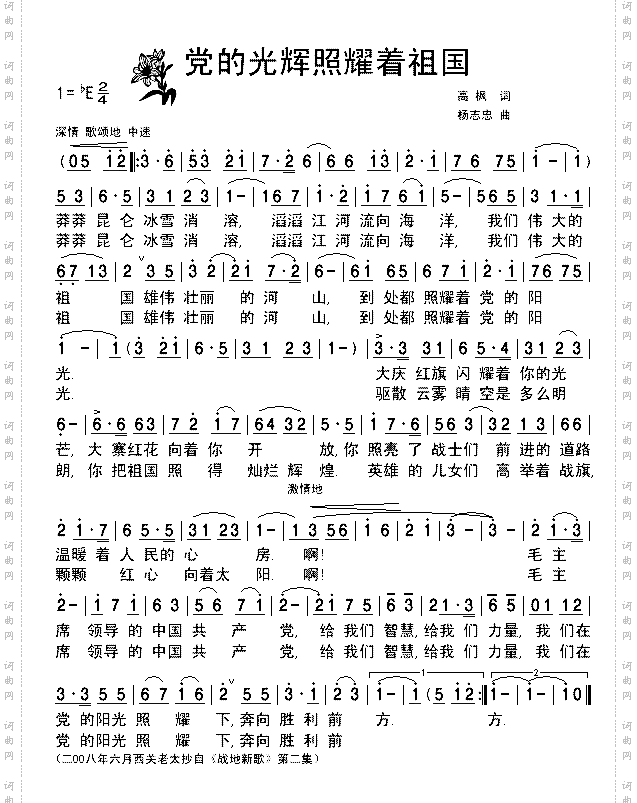 党的光辉照耀着祖国
1=♭E 2/4
高枫 词
杨志忠 曲
深情 歌颂地 中速
(05 12‖:3·6|553 21|7·26|66 13|2·1|76 75|1-|1)
53|6·5|31 23|1-|167|1·3|217|1·7 61|5-|565|3 1·1|
莽莽 昆仑 冰雪 消 溶, 滔滔 江河 流向 海 洋, 我们 伟大的
莽莽 昆仑 冰雪 消 溶, 滔滔 江河 流向 海 洋, 我们 伟大的
67 13|2 35|32|21 7·2|6-|61|65 67|2·1|76 75|
祖 国 雄伟 壮丽 的河 山, 到 处都 照耀着 党的 阳
祖 国 雄伟 壮丽 的河 山, 到 处都 照耀着 党的 阳
1-|1(3 21|6·5|31 23|1-)|3·3|31|65·4|31 33|
光. 大庆 红旗 闪 耀着 你的光
光. 驱散 云雾 晴 空是 多么明
6-|6·6 63|72|17|64 32|5·5|17·6|54 5|12 13|66|
芒, 大 寨红花 向着 你 开 放,你 照亮 了 战士们 前 进的 道路
朗, 你 把祖国 照 得 灿烂 辉 煌. 英雄 的 儿女们 高 举着 战旗,
激情地
21·7|65·5|31 23|1-|13 56|1·6|21|3-|3-|21·3|
温暖 着 人 民的 心 房. 啊! 毛 主
颗颗 红心 向着太 阳. 啊! 毛 主
2-|17 1|63|56 71|2-|21 75|6·6|43·6|365|01 12|
席 领导 的 中国 共 产 党, 给 我们 智慧,给我们 力量, 我们在
席 领导 的 中国 共 产 党, 给 我们 智慧,给我们 力量, 我们在
3·3 55|67 16|2 55|3·1|23|1-|1(5 12:‖1-|1-|10‖
1. 2.
党 的阳光 照 耀 下,奔向 胜利 前 方. 方.
党 的阳光 照 耀 下,奔向 胜利 前
(二00八年六月西关老太抄自《战地新歌》第二集)
词曲网